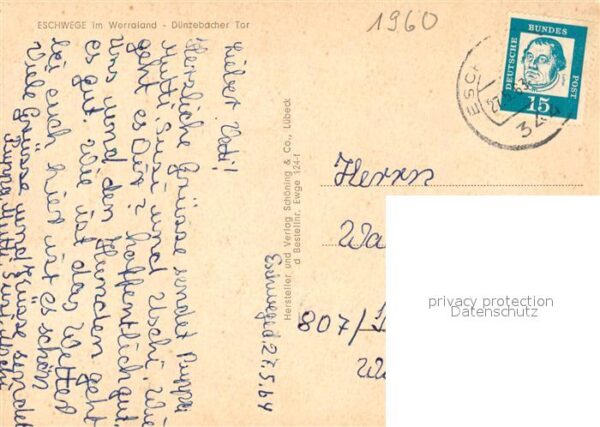 ESCHWEGE im Werraland - Dünzebacher Tor
1960
DEUTSCHE
BUNDES
POST
15
ESCH
344
Lieber Vati!
Herzliche Grüsse sendet Puppa
Mutti, Susi und Uschi. Wie
geht es Dir? hoffentlich gut.
uns und den Hunden geht
es gut. Wie ist das Wetter
bei euch hier ist es schön
Viele Grüsse und Küsse sendet
Puppa, Mutti Susi, Uschi
Eschwege d. 27.5.64
Hersteller und Verlag Schöning & Co., Lübeck
d Bestellnr. Ewge 124-f
Herrn
Wa
807/
privacy protection
Datenschutz